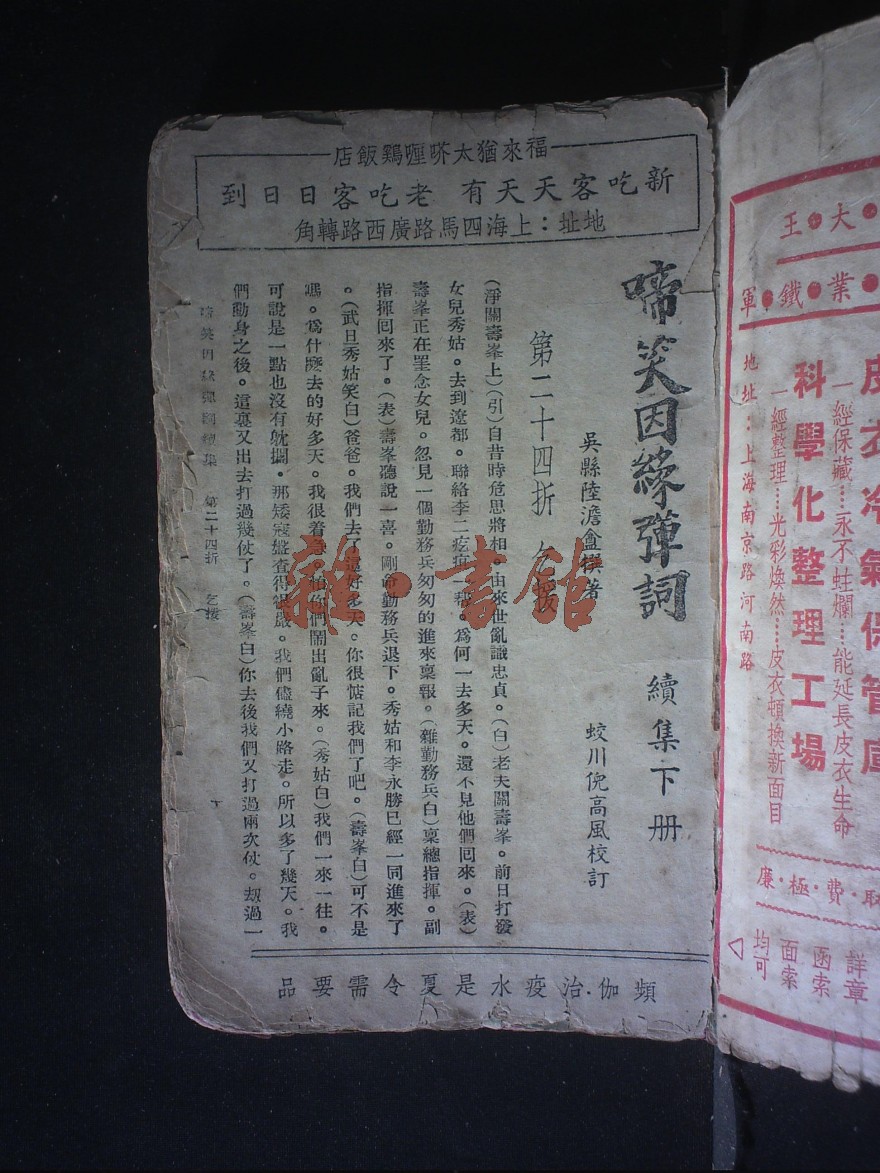 福來猶太咖喱鷄飯店
新吃客天天有 老吃客日日到
地址：上海四馬路廣西路轉角
啼笑因緣彈詞 續集下册
吳縣陸澹盦撰著 蛟川倪高風校訂
第二十四折 乞援
(淨關壽峯上)(引)自昔時危思將相。由來世亂識忠貞。(白)老夫關壽峯。前日打發
女兒秀姑。去到遼都。聯絡李二疙疸一幫。爲何一去多天。還不見他們回來。(表)
壽峯正在罣念女兒。忽見一個勤務兵匆匆的進來稟報。(雜勤務兵白)稟總指揮。副
指揮回來了。(表)壽峯聽說一喜。剛命勤務兵退下。秀姑和李永勝已經一同進來了
。(武旦秀姑笑白)爸爸。我們去了這好多天。你很惦記我們了吧。(壽峯白)可不是
嗎。爲什麽去的好多天。我很着急。怕你們鬧出亂子來。(秀姑白)我們一來一往。
可說是一點也沒有躭擱。那矮寇盤查得很嚴。我們儘繞小路走。所以多了幾天。我
們動身之後。這裏又出去打過幾仗了。(壽峯白)你去後我們又打過兩次仗。刼過一
啼笑因緣彈詞續集 第二十四折 乞援
頻伽治疫水是夏令需要品
雜·書館
王·大
軍·鐵·業
皮衣冷氣保管庫
一經保藏…永不蛀爛…能延長皮衣生命
科學化整理工場
一經整理…光彩煥然…皮衣頓換新面目
地址：上海南京路河南路
廉·極·費·取
詳章
函索
面索
均可